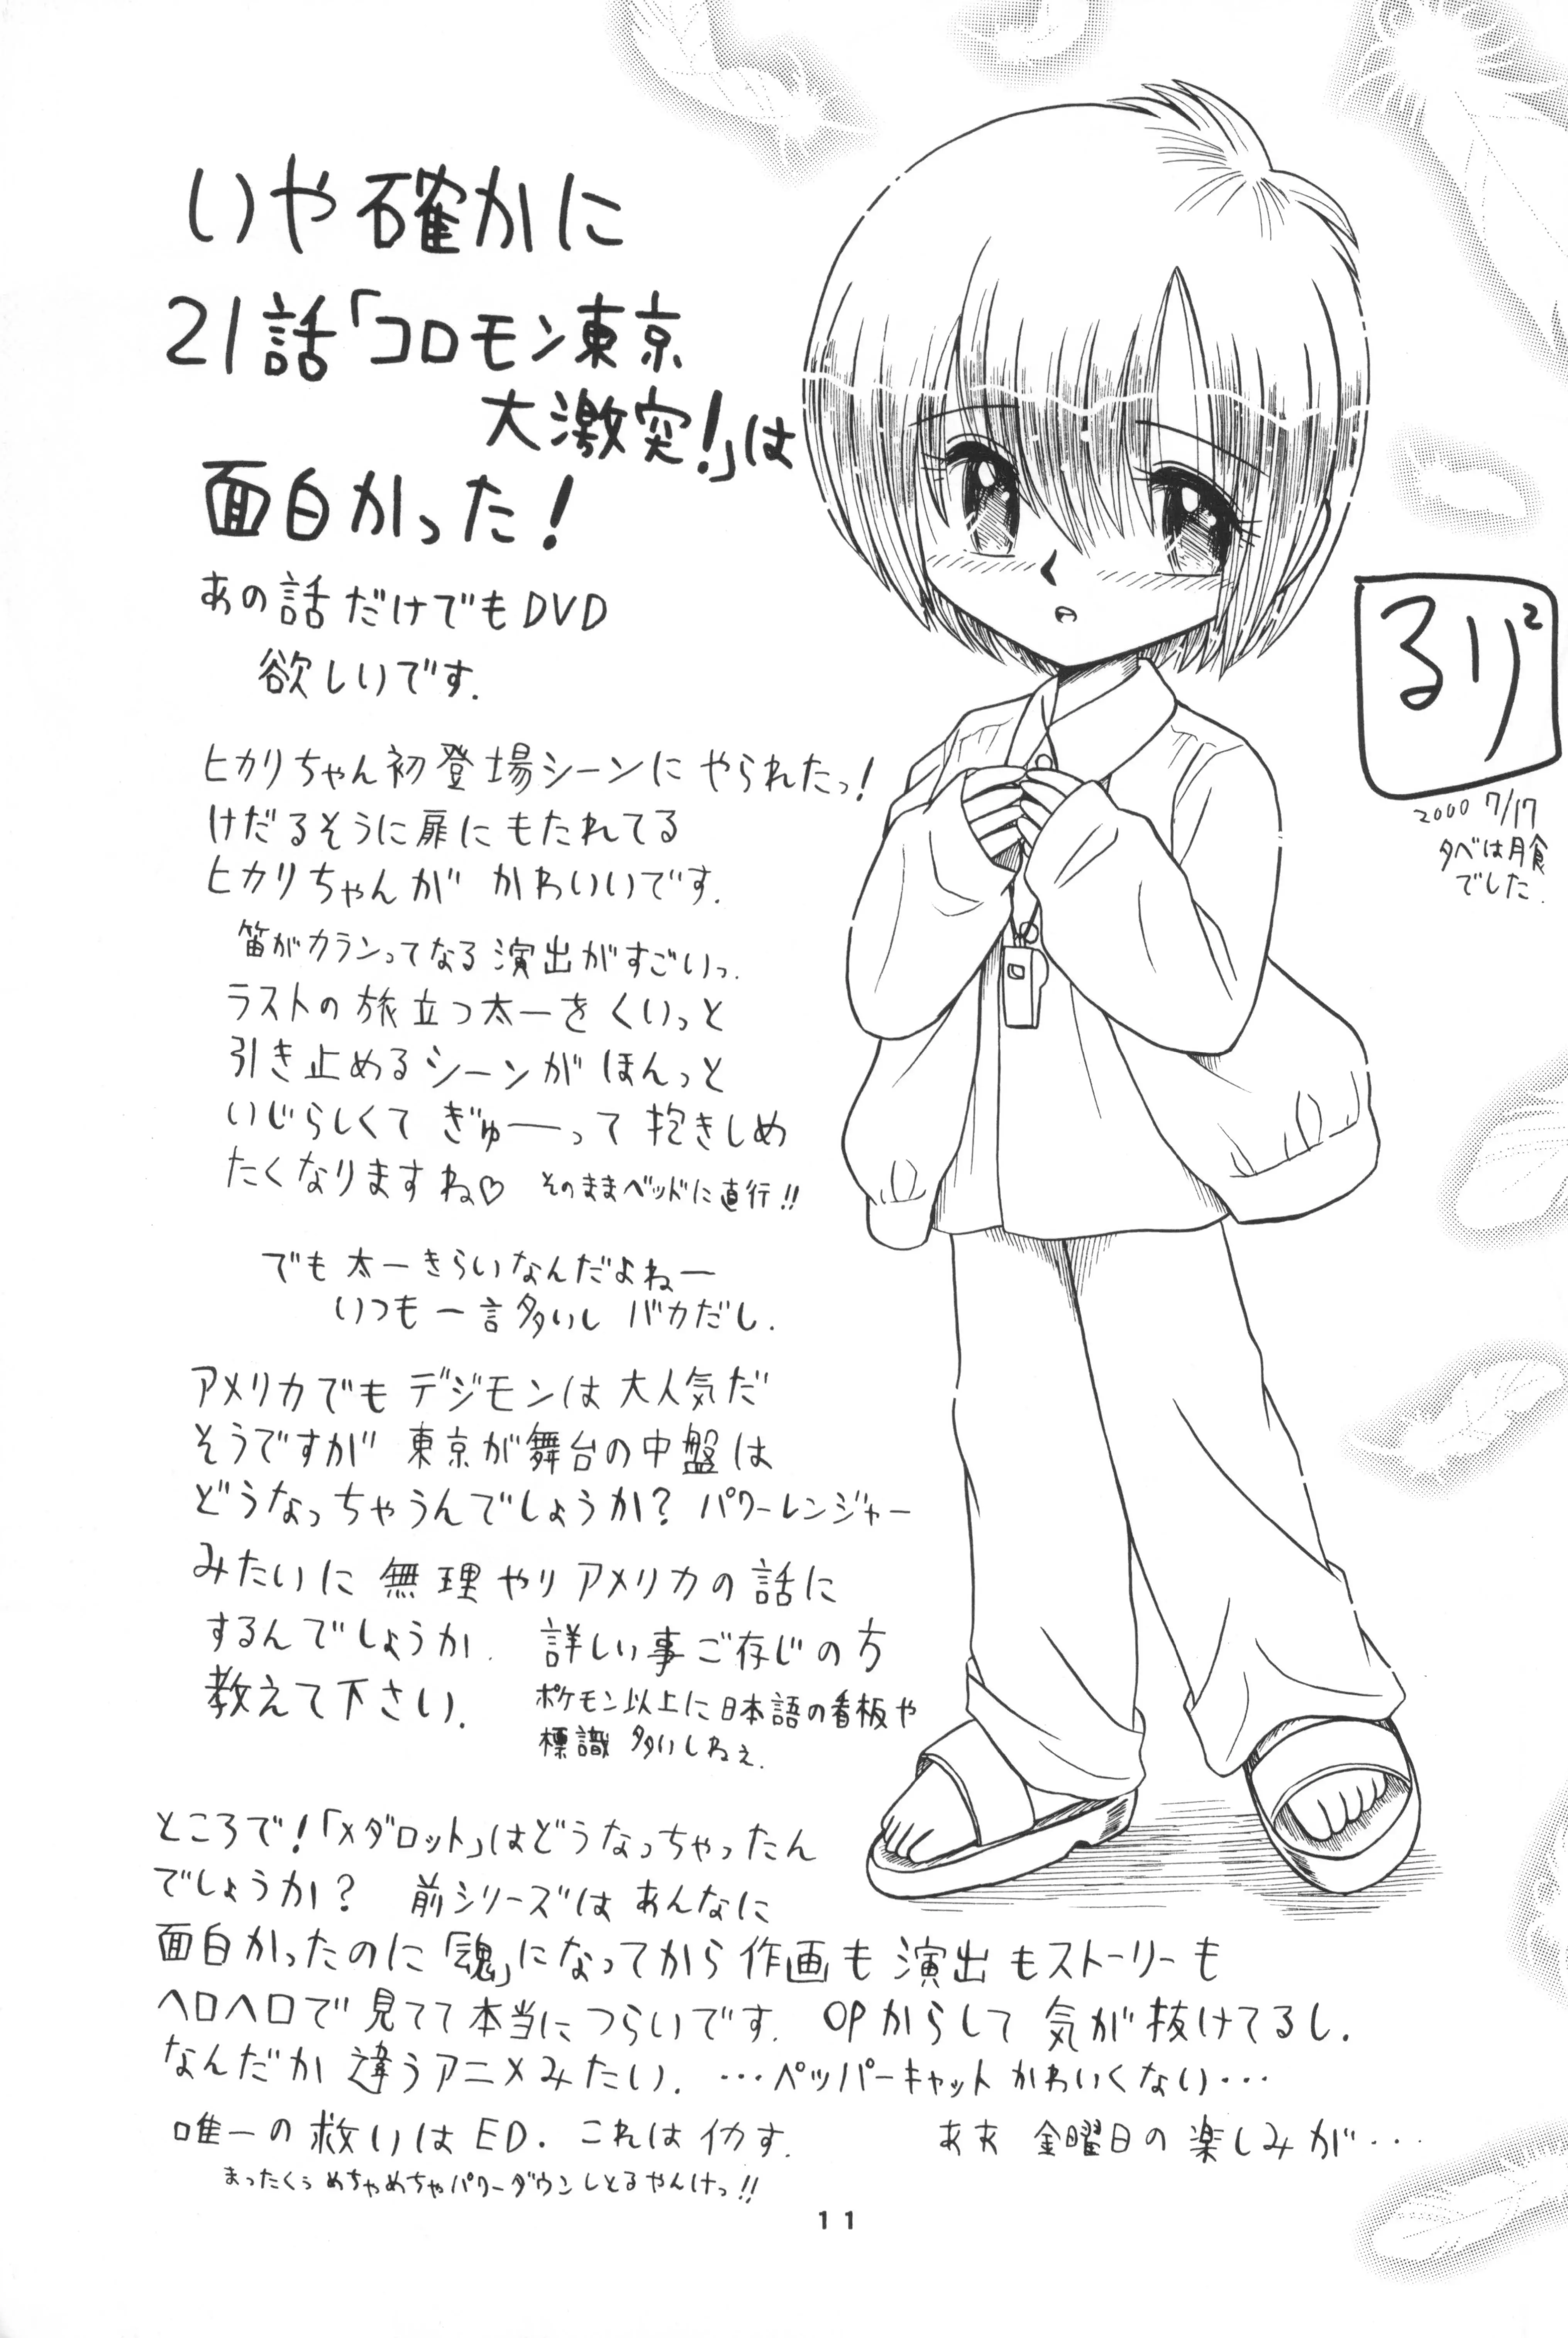 いや確かに
21話「コロモン東京
大激突!」は
面白かった!
あの話だけでもDVD
欲しいです.
ヒカリちゃん初登場シーンに やられたっ!
けだるそうに扉にもたれてる
ヒカリちゃんが かわいいです.
笛がカランってなる演出がすごいっ.
ラストの旅立つ太一をくいっと
引き止めるシーンが ほんっと
いじらしくて ぎゅーって抱きしめ
たくなりますね♡ そのままベッドに直行!!
でも太一きらいなんだよねー
いつも一言多いし バカだし.
アメリカでも デジモンは大人気だ
そうですが 東京が舞台の中盤は
どうなっちゃうんでしょうか? パワーレンジャー
みたいに 無理やりアメリカの話に
するんでしょうか. 詳しい事ご存じの方
教えて下さい.
ポケモン以上に日本語の看板や
標識 多いしねぇ.
ところで!「メダロット」はどうなっちゃったん
でしょうか? 前シリーズは あんなに
面白かったのに「魂」になってから 作画も 演出もストーリーも
ヘロヘロで見てて本当につらいです. OPからして 気が抜けてるし.
なんだか 違うアニメみたい. …ペッパーキャット かわいくない…
唯一の救いはED. これはイカす. ああ 金曜日の楽しみが…
まったくぅ めちゃめちゃパワーダウンしとるやんけっ!!
るり²
2000 7/17
夕べは月食
でした.
11